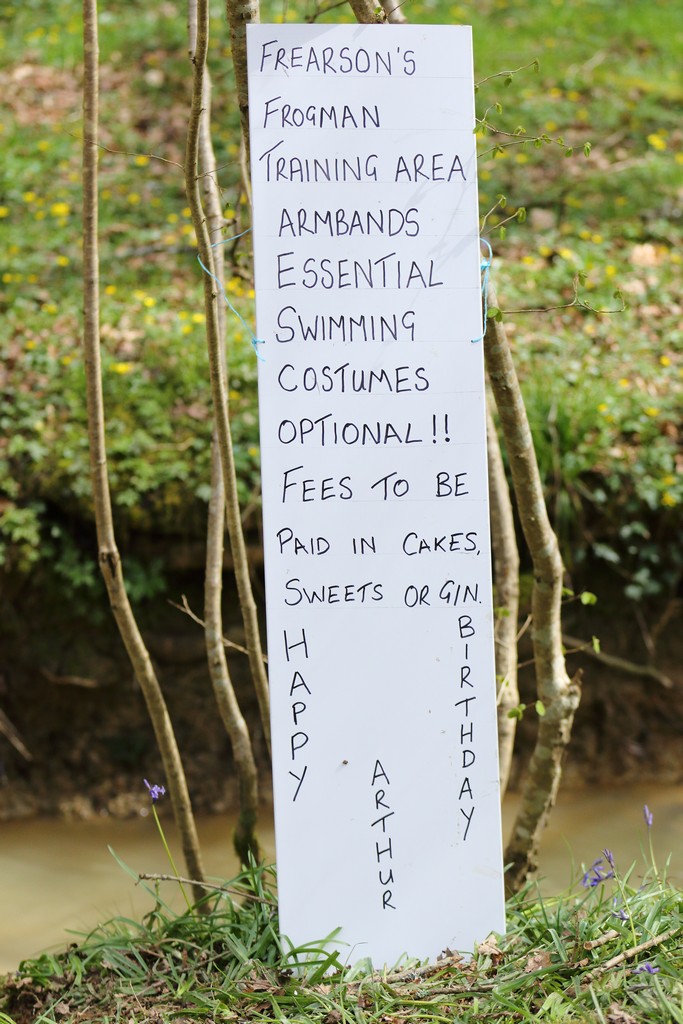 FREARSON'S
FROGMAN
TRAINING AREA
ARMBANDS
ESSENTIAL
SWIMMING
COSTUMES
OPTIONAL!!
FEES TO BE
PAID IN CAKES,
SWEETS OR GIN.
HAPPY
BIRTHDAY
ARTHUR